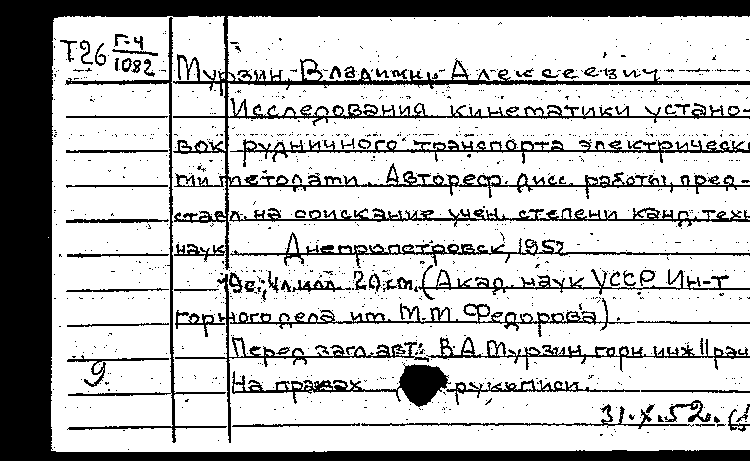 Т26 Г-4
1082
Мурзин, Владимир Алексеевич
Исследования кинематики устано-
вок рудничного транспорта электрически
ми методами. Автореф. дисс. работы, пред-
ставл. на соискание учен. степени канд. техн
наук. Днепропетровск, 1952
19с.; 4л.илл. 20 см. (Акад. наук УССР Ин-т
горного дела им. М.М. Федорова).
Перед загл. авт.: В.А. Мурзин, горн. инж
На правах рукописи.
9
31.X.52г.